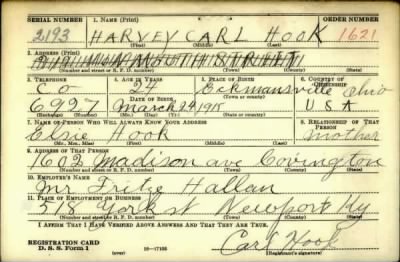 SERIAL NUMBER 1. NAME (Print) ORDER NUMBER
2193 HARVEY CARL HOOK 1621
(First) (Middle) (Last)
2. ADDRESS (Print)
(Number and street or R. F. D. number) (Town) (County) (State)
3. TELEPHONE 4. AGE IN YEARS 5. PLACE OF BIRTH 6. COUNTRY OF CITIZENSHIP
CO 24 Eckmansville Ohio
6927 DATE OF BIRTH March 24 1915 (Town or county) USA
(Exchange) (Number) (Mo.) (Day) (Yr.) (State or country)
7. NAME OF PERSON WHO WILL ALWAYS KNOW YOUR ADDRESS 8. RELATIONSHIP OF THAT PERSON
Elsie Hook mother
(Mr., Mrs., Miss) (First) (Middle) (Last)
9. ADDRESS OF THAT PERSON
1602 Madison ave Covington
(Number and street or R. F. D. number) (Town) (County) (State)
10. EMPLOYER'S NAME
Mr Fritze Hallan
11. PLACE OF EMPLOYMENT OR BUSINESS
518 York st Newport Ky
(Number and street or R. F. D. number) (Town) (County) (State)
I AFFIRM THAT I HAVE VERIFIED ABOVE ANSWERS AND THAT THEY ARE TRUE.
REGISTRATION CARD
D. S. S. Form 1 (over) 16—17105 Carl Hook
(Registrant's signature)